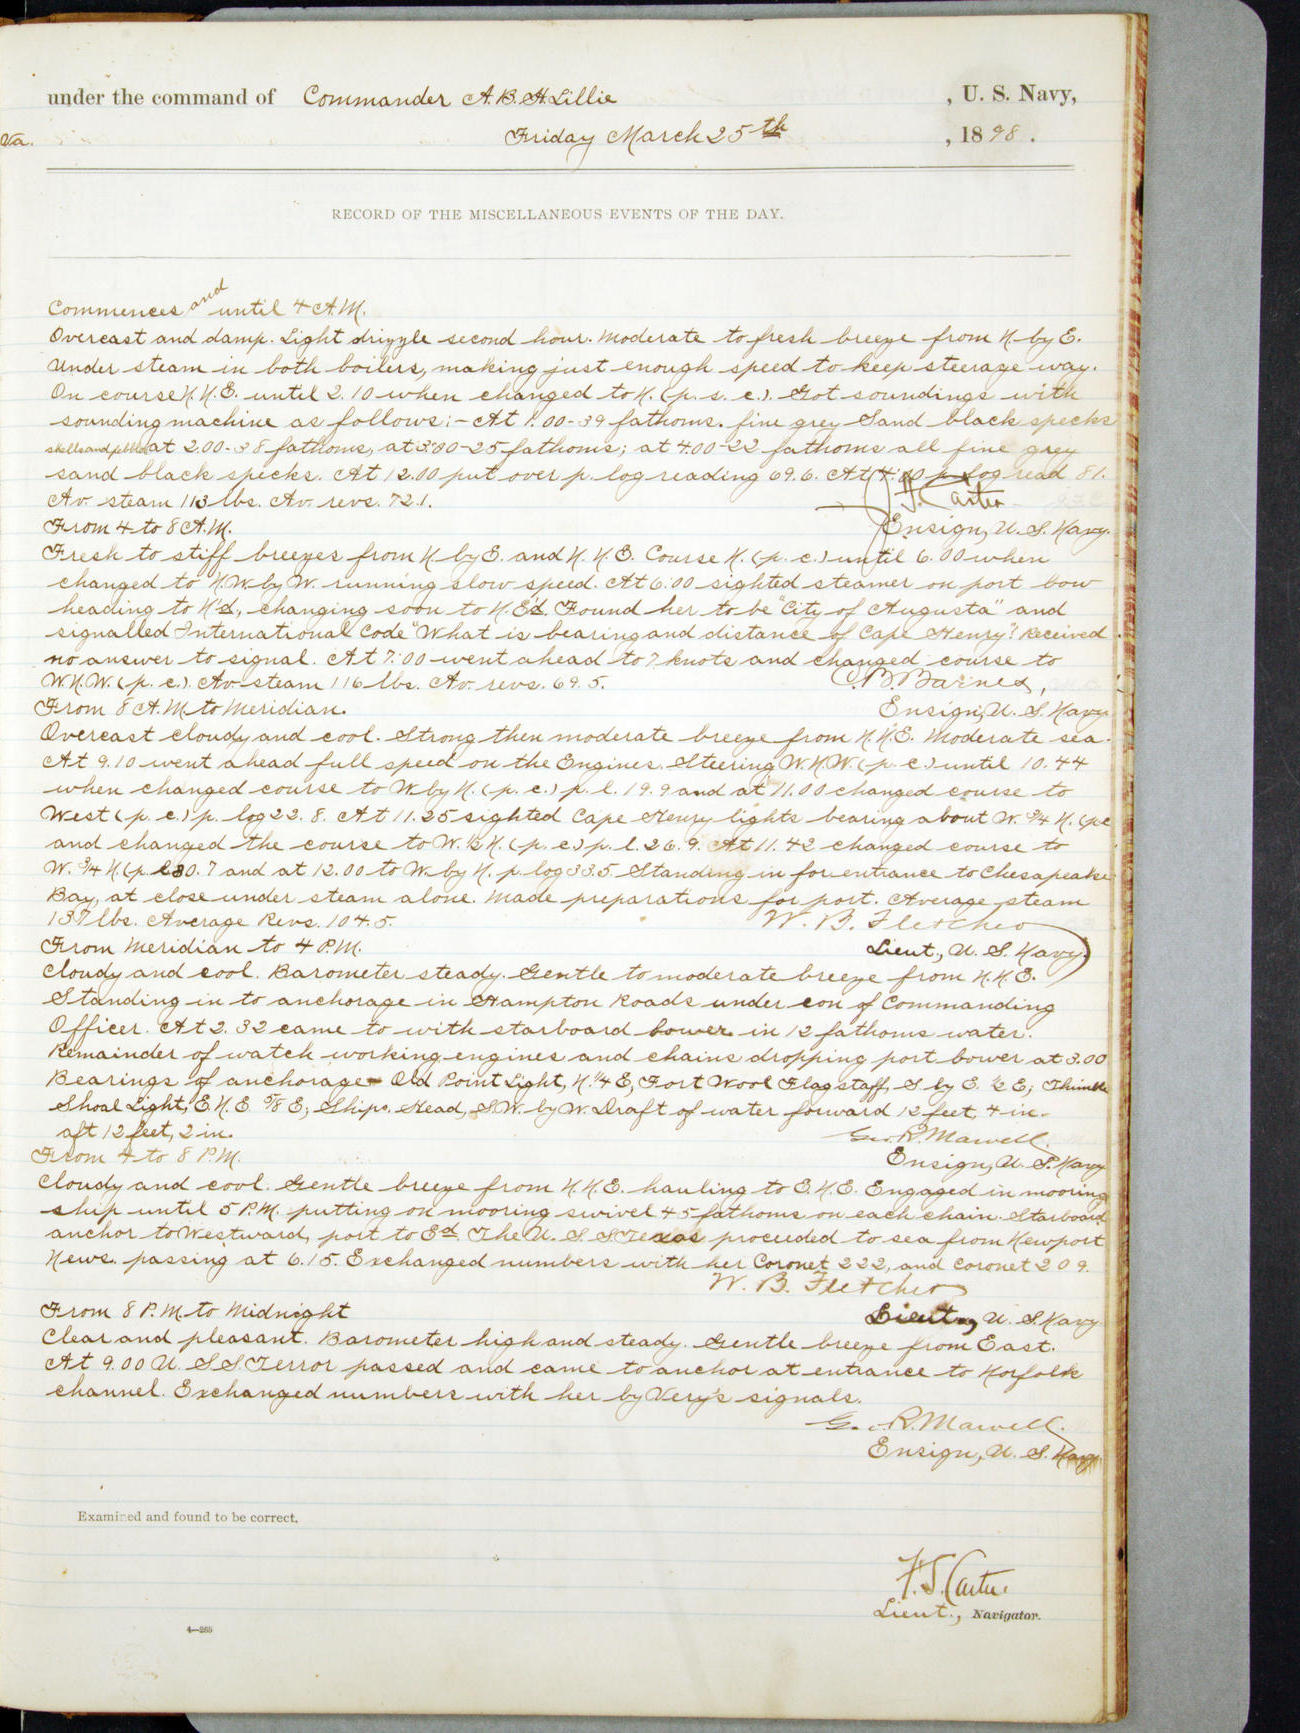 under the command of Commander A. B. H. Lillie , U. S. Navy,
Va. Friday March 25th , 1898 .
RECORD OF THE MISCELLANEOUS EVENTS OF THE DAY.
Commences and until 4 A.M.
Overcast and damp. Light drizzle second hour. Moderate to fresh breeze from N. by E.
Under steam in both boilers, making just enough speed to keep steerage way.
On course N.N.E. until 2.10 when changed to N. (p. s. c.). Got soundings with
sounding machine as follows:- At 1.00-39 fathoms. fine grey Sand black specks
shells and pebbles at 2.00-38 fathoms, at 3.00-25 fathoms; at 4.00-22 fathoms all fine grey
sand black specks. At 12.00 put over p. log reading 69.6. At 4.00 p. log read 81.
Av. steam 113 lbs. Av. revs. 72.1. Carter
From 4 to 8 A.M. Ensign, U. S. Navy.
Fresh to stiff breezes from N by E. and N. N. E. Course N. (p. c.) until 6.00 when
changed to N.W. by W. running slow speed. At 6.00 sighted steamer on port bow
heading to N'd, changing soon to N.E'd. Found her to be "City of Augusta" and
signalled International Code "What is bearing and distance of Cape Henry"? Received
no answer to signal. At 7.00 went ahead to 7 knots and changed course to
W.N.W. (p. c.). Av. steam 116 lbs. Av. revs. 69.5. C. B. Barnes,
From 8 A.M. to Meridian. Ensign, U. S. Navy
Overcast cloudy and cool. Strong then moderate breeze from N.N.E. Moderate sea.
At 9.10 went ahead full speed on the Engines. Steering W.N.W. (p. c.) until 10.44
when changed course to W. by N. (p. c.) p. l. 19.9 and at 11.00 changed course to
West (p. c.) p. log 22.8. At 11.25 sighted Cape Henry lights bearing about W. 3/4 N. (p c
and changed the course to W. 1/2 N. (p. c) p. l. 26.9. At 11.42 changed course to
W. 3/4 N (p. l 30.7 and at 12.00 to W. by N. p. log 33.5 Standing in for entrance to Chesapeake
Bay, at close under steam alone. Made preparations for port. Average steam
137 lbs. Average Revs. 104.5. W. B. Fletcher
From Meridian to 4 P.M. Lieut., U. S. Navy.
Cloudy and cool. Barometer steady. Gentle to moderate breeze from N.N.E.
Standing in to anchorage in Hampton Roads under con of Commanding
Officer. At 2.32 came to with starboard bower in 12 fathoms water.
Remainder of watch working engines and chains dropping port bower at 3.00
Bearings of anchorage- Old Point Light, N. 1/4 E; Fort Wool Flagstaff, S by E. 1/2 E; Thimble
Shoal Light, E. N. E 5/8 E; Ships Head, S.W. by W. Draft of water forward 12 feet, 4 in.
aft 12 feet, 2 in. Geo. R. Marvell.
From 4 to 8 P.M. Ensign, U. S. Navy
Cloudy and cool. Gentle breeze from N.N.E. hauling to E.N.E. Engaged in mooring
ship until 5 P.M. putting on mooring swivel 45 fathoms on each chain. Starboard
anchor to Westward, port to E'd. The U. S. S. Texas proceeded to sea from Newport
News. passing at 6.15. Exchanged numbers with her Coronet 222, and Coronet 209.
W. B. Fletcher
From 8 P.M. to Midnight Lieut., U. S. Navy
Clear and pleasant. Barometer high and steady. Gentle breeze from East.
At 9.00 U. S. S Terror passed and came to anchor at entrance to Norfolk
channel. Exchanged numbers with her by Very's signals.
Geo. R. Marvell.
Ensign, U. S. Navy
Examined and found to be correct.
Carter
Lieut., Navigator.
4—265